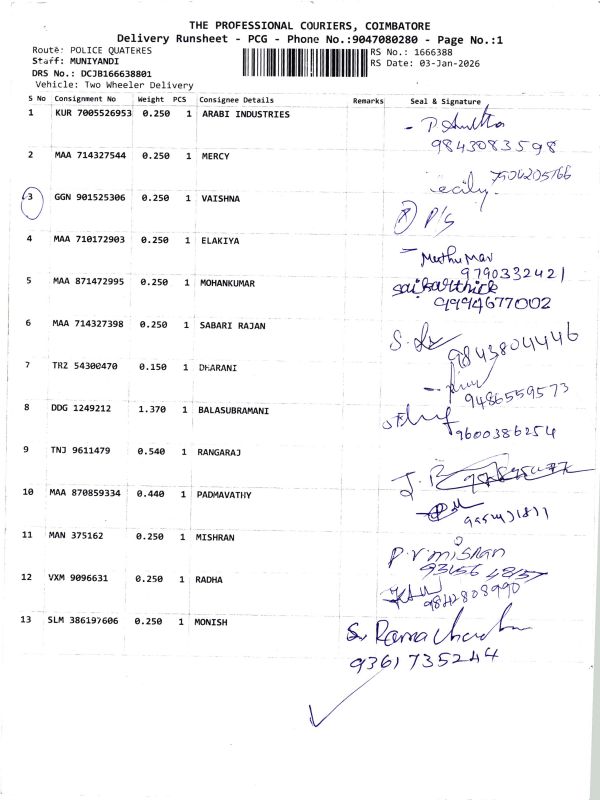 THE PROFESSIONAL COURIERS, COIMBATORE
Delivery Runsheet - PCG - Phone No.:9047080280 - Page No.:1
Route: POLICE QUATERES
RS No.: 1666388
Staff: MUNIYANDI
RS Date: 03-Jan-2026
DRS No.: DCJB166638801
Vehicle: Two Wheeler Delivery
S No Consignment No Weight PCS Consignee Details Remarks Seal & Signature
1 KUR 7005526953 0.250 1 ARABI INDUSTRIES
9843083598
2 MAA 714327544 0.250 1 MERCY
3 GGN 901525306 0.250 1 VAISHNA
P/S
4 MAA 710172903 0.250 1 ELAKIYA
9790332421
5 MAA 871472995 0.250 1 MOHANKUMAR
saikarthick
9994677002
6 MAA 714327398 0.250 1 SABARI RAJAN
9843804446
7 TRZ 54300470 0.150 1 DHARANI
9486559573
8 DDG 1249212 1.370 1 BALASUBRAMANI
9600386254
9 TNJ 9611479 0.540 1 RANGARAJ
10 MAA 870859334 0.440 1 PADMAVATHY
11 MAN 375162 0.250 1 MISHRAN
P.V.MISRAN
12 VXM 9096631 0.250 1 RADHA
9842808990
13 SLM 386197606 0.250 1 MONISH
9361735244